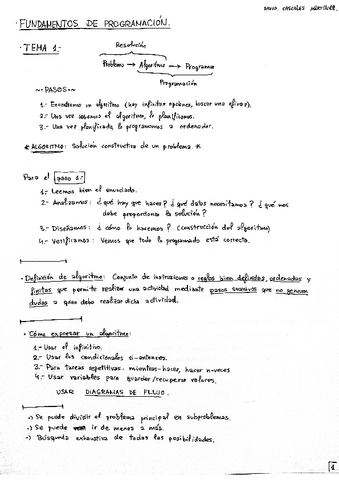 DAVID
· FUNDAMENTOS DE PROGRAMACIÓN.
· TEMA 1.-
Resolución
Problema → Algoritmo → Programa
Programación
~· PASOS·~
1.- Encontramos un algoritmo (hay infinitas opciones, buscar una eficaz).
2.- Una vez sabemos el algoritmo, lo planificamos.
3.- Una vez planificado, lo programamos a ordenador.
* ALGORITMO: Solución constructiva de un problema. *
Para el paso 1.-
1.- Leemos bien el enunciado.
2.- Analizamos: ¿qué hay que hacer? ¿qué datos necesitamos? ¿qué nos
debe proporcionar la solución?
3.- Diseñamos: ¿cómo lo haremos? (construcción del algoritmo)
4.- Verificamos: Vemos que todo lo programado está correcto.
· Definición de algoritmo: Conjunto de instrucciones o reglas bien definidas, ordenadas y
finitas que permite realizar una actividad mediante pasos sucesivos que no generan
dudas a quien debe realizar dicha actividad.
· Cómo expresar un algoritmo:
1.- Usar el infinitivo.
2.- Usar los condicionales si-entonces.
3.- Para tareas repetitivas: mientras-hacer, hacer n-veces
4.- Usar variables para guardar/recuperar valores.
USAR DIAGRAMAS DE FLUJO.
·) Se puede dividir el problema principal en subproblemas.
·) Se puede ir de menos a más.
·) Búsqueda exhaustiva de todas las posibilidades.
1